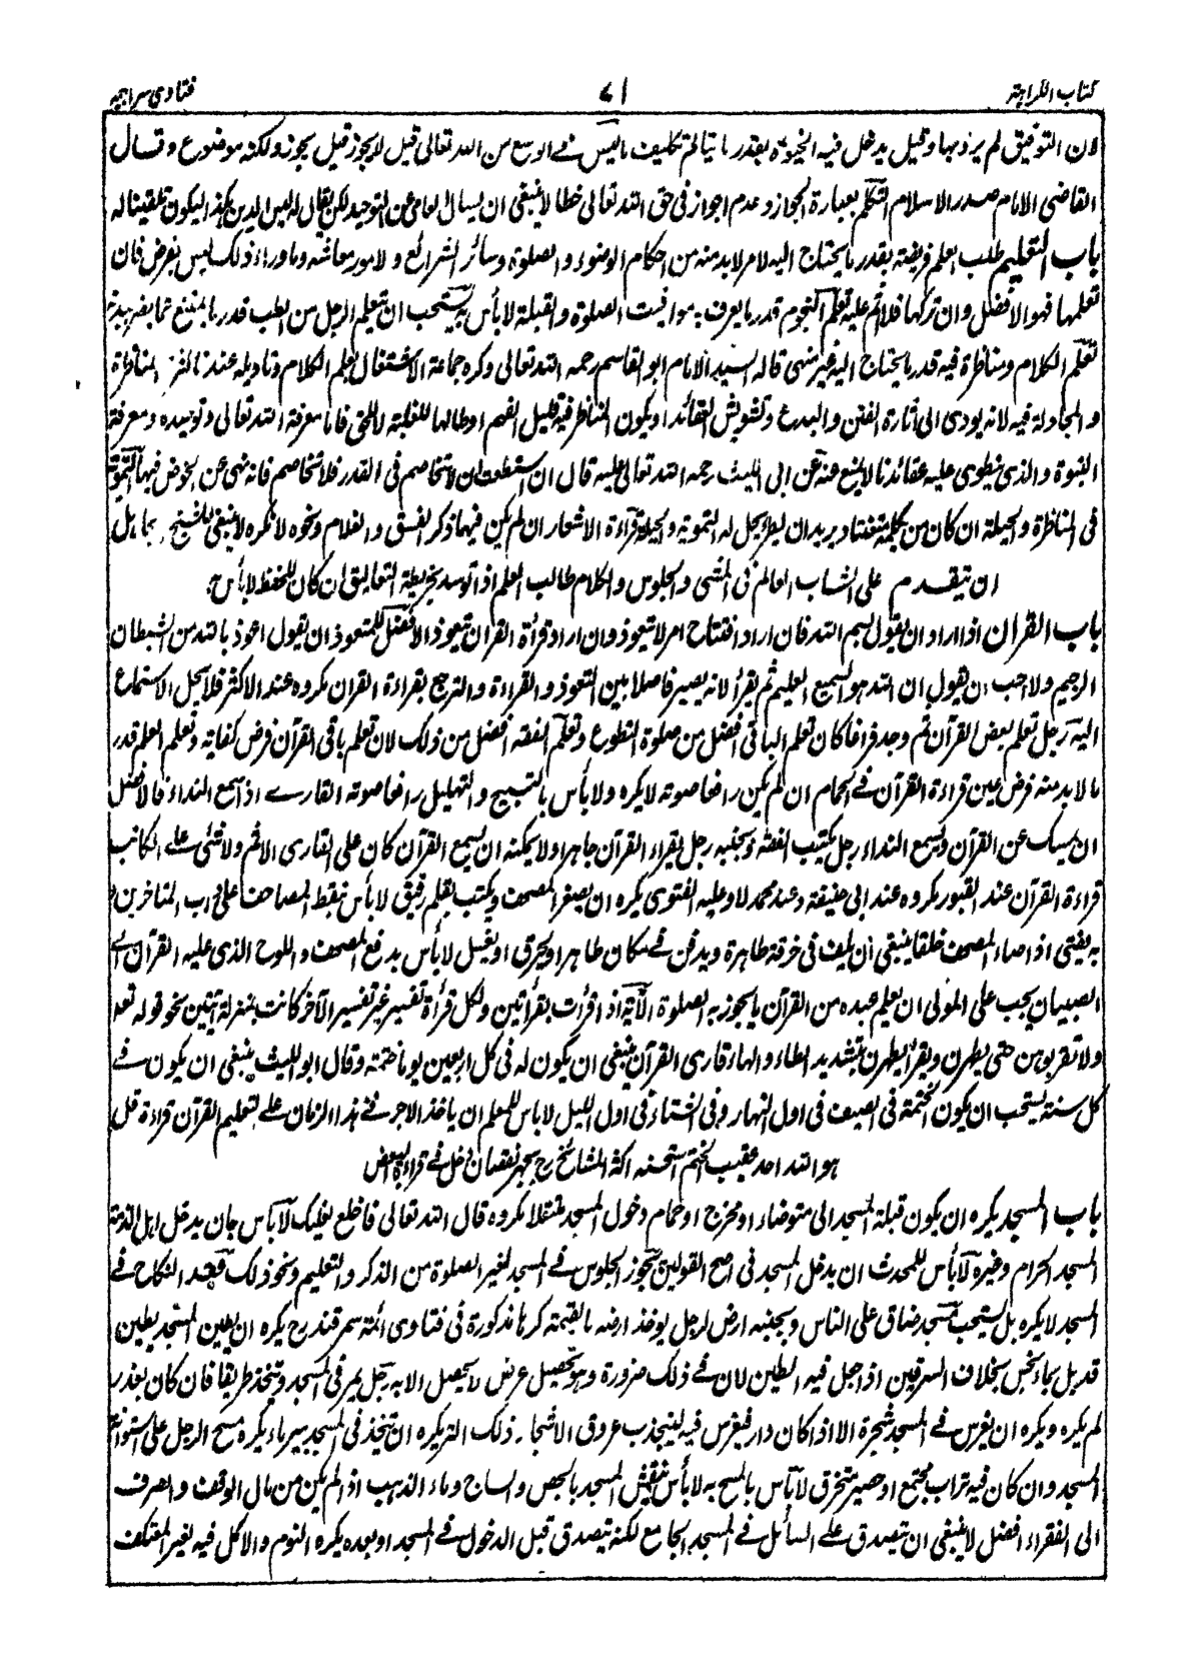 كتاب الكراهة
٧١
فتاوى سراجيه
لان التوفيق لم يرد بها وقيل يدخل فيه الخيوة بقدر ما يتالم تكليف ما ليس فى الوسع من الله تعالى قيل لا يجوز قيل يجوز ولكنه موضوع وقال
القاضى الامام صدر الاسلام التكلم بعبارة الجواز وعدم الجواز فى حق الله تعالى خطا لا ينبغى ان يسال العامى عن التوحيد لكن يقال له اليس الدين بكذا ليكون تلقينا له
باب التعليم طلب العلم فريضة بقدر ما يحتاج اليه لامر لا بد منه من احكام الوضوء والصلوة وسائر الشرائع ولامور معاشه وما وراء ذلك ليس بفرض فان
تعلمها فهو الافضل وان تركها فلا اثم عليه تعلم النجوم قدر ما يعرف به مواقيت الصلوة والقبلة لا بأس به يستحب ان يتعلم الرجل من الطب قدر ما يمتنع عما يضر ببدنه
تعلم الكلام ومناظرة فيه قدر ما يحتاج اليه غير منهى قاله السيد الامام ابو القاسم رحمه الله تعالى وكره جماعة الاشتغال بعلم الكلام وتاويله عندنا كثرة المناظرة
والمجادلة فيه لانه يودى الى اثارة الفتن والبدع وتشويش العقائد او يكون المناظر فيه قليل الفهم او طالبا للغلبة لا للحق فاما معرفة الله تعالى وتوحيده ومعرفة
النبوة والذى ينطوى عليه عقائدنا لا يمنع عنه عن ابى الليث رحمة الله تعالى عليه قال ان استطعت ان لا تخاصم فى القدر فلا تخاصم فانه نهى عن الخوض فيها التمويه
فى المناظرة والحيلة ان كان من يكلمه متعنتا ويريد ان يطرحه يحل له التمويه والحيلة قراءة الاشعار ان لم يكن فيها ذكر الفسق والغلام ونحوه لا نكره لا ينبغى للشيخ الجاهل
ان يتقدم على الشاب العالم فى المشى والجلوس والكلام طالب العلم اذا توسد بخريطة التعاليق ان كان للحفظ لا بأس به
باب القران اذا اراد ان يقول بسم الله فان اراد افتتاح امر لا يتعوذ وان اراد قرأة القران يتعوذ الافضل للمتعوذ ان يقول اعوذ بالله من الشيطان
الرجيم ولا احب ان يقول ان الله هو السميع العليم ثم يقرأ لانه يصير فاصلا بين التعوذ والقراءة والترجع بقراءة القران مكروه عند الاكثر فلا يحل الاستماع
اليه رجل تعلم بعض القرآن ثم وجد فراغا كان تعلم الباقى افضل من صلوة التطوع وتعلم الفقه افضل من ذلك لان تعلم باقى القرآن فرض كفاية وتعلم العلم قدر
ما لا بد منه فرض عين قراءة القرآن فى الحمام ان لم يكن رافعا صوته لا يكره ولا بأس بالتسبيح والتهليل رافعا صوته القارى اذا سمع النداء فالافضل
ان يمسك عن القرآن ويسمع النداء رجل يكتب الفقه وبجنبه رجل يقراء القرآن جاهرا ولا يمكنه ان يسمع القرآن كان على القارى الاثم ولا شئ على الكاتب
قراءة القرآن عند القبور مكروه عند ابى حنيفة وعند محمد لا وعليه الفتوى يكره ان يصغر المصحف ويكتب بقلم رقيق لا بأس بنقط المصاحف على جواب المتاخرين
به يفتى اذا صار المصحف خلقا ينبغى ان يلف فى خرقة طاهرة ويدفن فى مكان طاهر او يحرق او يغسل لا بأس بدفع المصحف واللوح الذى عليه القرآن الى
الصبيان يجب على المولى ان يعلم عبده من القرآن ما يجوز به الصلوة الآية اذا قرأت بقرأتين ولكل قرأة تفسير غير تفسير الآخر كانت بمنزلة آيتين نحو قوله تعالى
ولا تقربوهن حتى يطهرن ويقرأ يطهرن بتشديد الطاء والهاء قارى القرآن ينبغى ان يكون له فى كل اربعين يوما ختمة وقال ابو الليث ينبغى ان يكون فى
كل سنة يستحب ان يكون الختمة فى الصيف فى اول النهار وفى الشتاء فى اول الليل لا باس للمعلم ان ياخذ الاجر فى هذا الزمان على تعليم القرآن قراءة قل
هو الله احد عقيب الختم استحسنه اكثر المشائخ رح يجبر نقصان دخل فى قراءة البعض
باب المسجد يكره ان يكون قبلة المسجد الى متوضاء او مخرج او حمام دخول المسجد متنعلا مكروه قال الله تعالى فاخلع نعليك لا بأس بان يدخل اهل الذمة
المسجد الحرام وغيره لا بأس للمحدث ان يدخل المسجد فى اصح القولين يجوز الجلوس فى المسجد لغير الصلوة من الذكر والتعليم ونحو ذلك عقد النكاح فى
المسجد لا يكره بل يستحب مسجد ضاق على الناس وبجنبه ارض لرجل يوخذ ارضه بالقيمة كرها مذكورة فى فتاوى ائمة سمرقند رح يكره ان يطين المسجد بطين
قد بل بماء نجس بخلاف السرقين اذا جعل فيه الطين لان فى ذلك ضرورة وهو تحصيل غرض لا يحصل الا به رجل يمر فى المسجد ويتخذ طريقا فان كان بعذر
لم يكره ويكره ان يغرس فى المسجد شجرة الا اذا كان دار فيغرس فيه لينجذب عروق الاشجار ذلك النز يكره ان يتخذ فى المسجد بير ماء يكره مسح الرجل على اسطوانة
المسجد وان كان فيه تراب مجتمع او حصير متخرق لا بأس بالمسح به لا بأس بنقش المسجد بالجص والساج وماء الذهب اذا لم يكن من مال الوقف والصرف
الى الفقراء افضل لا ينبغى ان يتصدق على السائل فى المسجد الجامع لكنه يتصدق قبل الدخول فى المسجد او بعده يكره النوم والاكل فيه لغير المعتكف